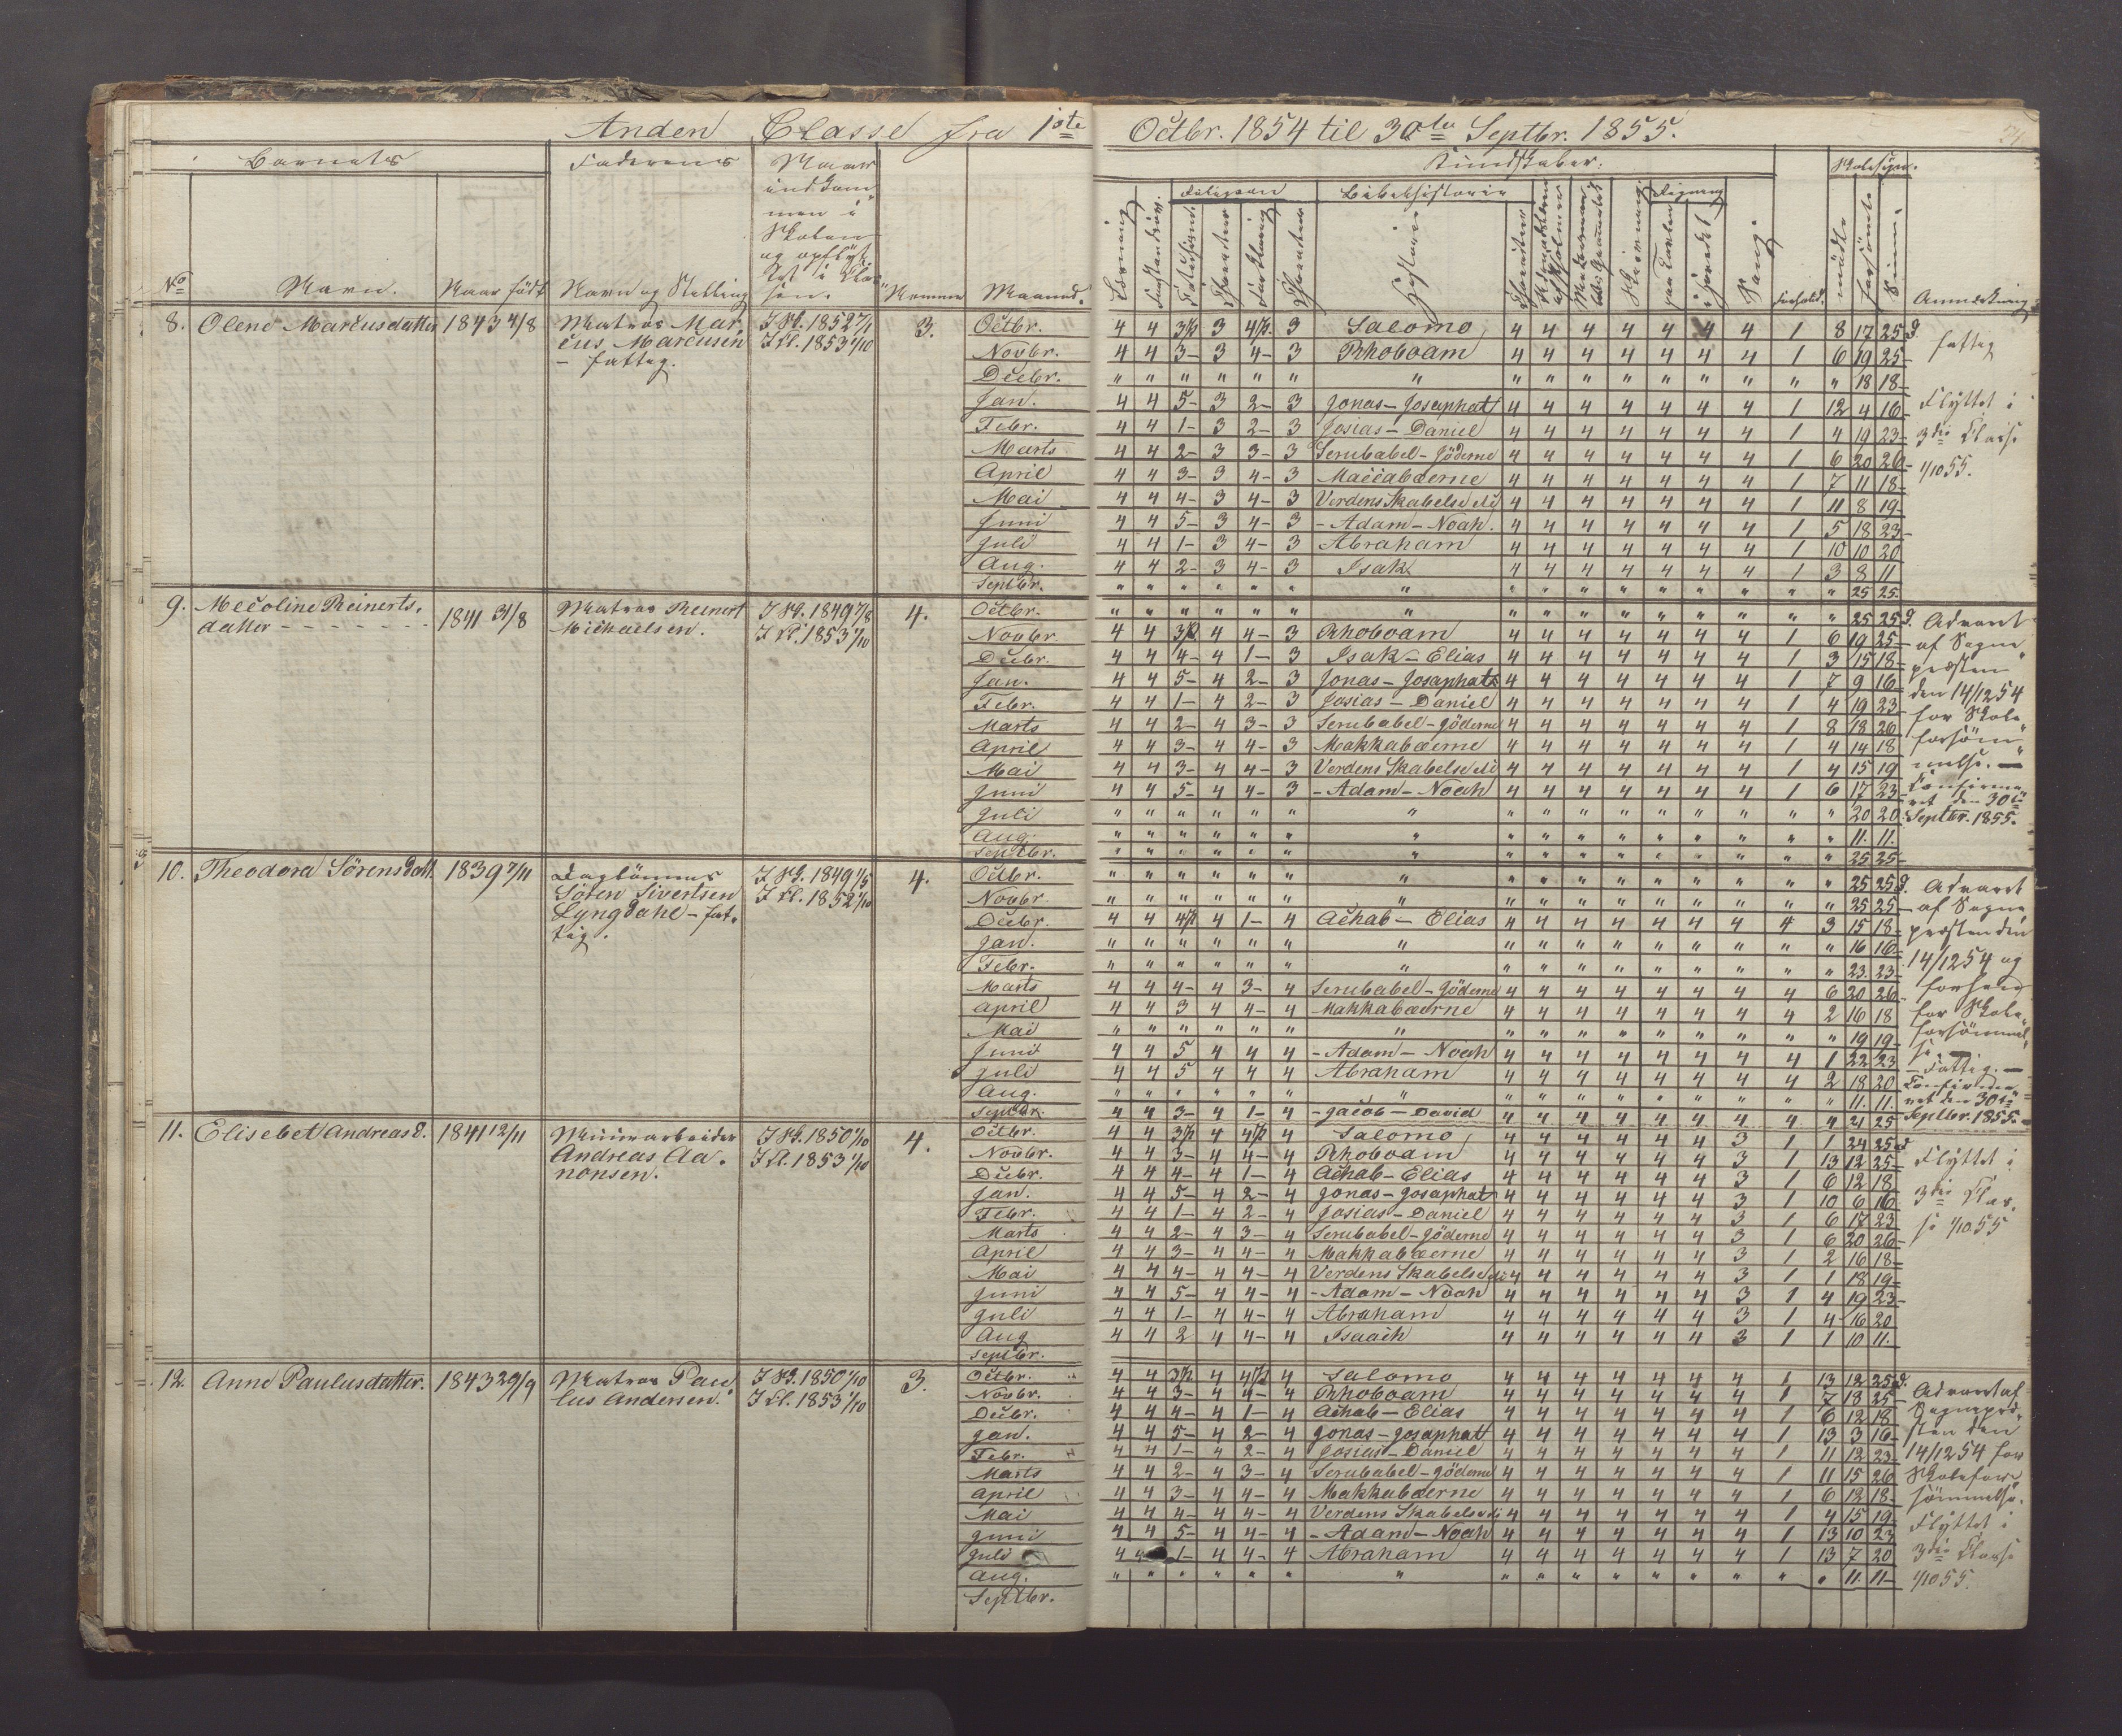 Anden Classe fra 1ste Octbr. 1854 til 30te Septbr. 1855.
Barnets Faderens Naar indkommen i Skolen og opflyttet i Classen. Kundskaber. Skolesøgn.
Religion Bibelhistorie Regning
No Navn. Naar födt Navn og Stilling Nemme Maaned. Læsning Historie Skrivning Sang Forhold. mödte forsömte Anmærkning
8. Olene Marcusdatter 1843 4/8 Matros Mar-
cus Marcusen
- fattig.
I Sk. 1852 7/1
I Kl. 1853 1/10
3.
Octbr. 4 4 3½ 3 4½ 3 Salomo 4 4 4 4 4 4 4 1 8 17 25 d.
Novbr. 4 4 3- 3 4- 3 Rhoboam 4 4 4 4 4 4 4 1 6 19 25-
Decbr. " " " " " " " " " " " " " " " " 18 18-
Jan. 4 4 5- 3 2- 3 Jonas - Josaphat 4 4 4 4 4 4 4 1 12 4 16-
Febr. 4 4 1- 3 2- 3 Josias - Daniel 4 4 4 4 4 4 4 1 4 19 23-
Marts 4 4 2- 3 3- 3 Serubabel - Jöderne 4 4 4 4 4 4 4 1 6 20 26-
April 4 4 3- 3 4- 3 Maccabæerne 4 4 4 4 4 4 4 1 7 11 18-
Mai 4 4 4- 3 4- 3 Verdens Skabelse 4 4 4 4 4 4 4 1 11 8 19-
Juni 4 4 5- 3 4- 3 - Adam - Noah. 4 4 4 4 4 4 4 1 5 18 23-
Juli 4 4 1- 3 4- 3 Abraham 4 4 4 4 4 4 4 1 10 10 20
Aug. 4 4 2- 3 4- 3 Isak 4 4 4 4 4 4 4 1 3 8 11
Septbr. " " " " " " " " " " " " " " " " 25 25
fattig
Flyttet i
3die Classe
1/10 55.
9. Mecoline Reinerts-
datter - - - - - - - 1841 31/8 Matros Reinert
Michaelsen.
I Sk. 1849 7/8
I Kl. 1853 1/10
4.
Octbr. " " " " " " " " " " " " " " " " 25 25 d.
Novbr. 4 4 3½ 4 4- 3 Rhoboam 4 4 4 4 4 4 4 1 6 19 25-
Decbr. 4 4 4- 4 1- 3 Isak - Elias 4 4 4 4 4 4 4 1 3 15 18-
Jan. 4 4 5- 4 2- 3 Jonas - Josaphat 4 4 4 4 4 4 4 1 7 9 16-
Febr. 4 4 1- 4 2- 3 Josias - Daniel 4 4 4 4 4 4 4 1 4 19 23-
Marts 4 4 2- 4 3- 3 Serubabel - Jöderne 4 4 4 4 4 4 4 1 8 18 26
April 4 4 3- 4 4- 3 Makkabæerne 4 4 4 4 4 4 4 1 4 14 18
Mai 4 4 3- 4 4- 3 Verdens Skabelse 4 4 4 4 4 4 4 1 4 15 19
Juni 4 4 5- 4 4- 3 - Adam - Noah 4 4 4 4 4 4 4 1 6 17 23-
Juli " " " " " " " " " " " " " " " " 20 20-
Aug. " " " " " " " " " " " " " " " " 11. 11.
Septbr. " " " " " " " " " " " " " " " " 25 25-
Advaret
af Sogne-
præsten
den 14/12 54
for Skole-
forsöm-
melse. -
Confirme-
ret den 30te
Septbr. 1855.
10. Theodora Sörensdatt. 1839 7/11 Daglönner
Sören Sivertsen
Lyngdahl - fat-
tig.
I Sk. 1849 1/5
I Kl. 1852 1/10
4.
Octbr. " " " " " " " " " " " " " " " " 25 25 d.
Novbr. " " " " " " " " " " " " " " " " 25 25-
Decbr. 4 4 4½ 4 1- 4 Achab - Elias 4 4 4 4 4 4 4 4 3 15 18-
Jan. " " " " " " " " " " " " " " " " 16 16-
Febr. " " " " " " " " " " " " " " " " 23. 23-
Marts 4 4 4- 4 3- 4 Serubabel - Jöderne 4 4 4 4 4 4 4 4 6 20 26-
April 4 4 3 4 4- 4 Makkabæerne 4 4 4 4 4 4 4 4 2 16 18
Mai " " " " " " " " " " " " " " " " 19 19-
Juni 4 4 5 4 4 4 - Adam - Noah 4 4 4 4 4 4 4 4 1 22 23
Juli 4 4 5 4 4 4 Abraham 4 4 4 4 4 4 4 4 2 18 20
Aug. " " " " " " " " " " " " " " " " 11. 11.
Septbr. 4 4 3- 4 1- 4 - Jacob - David 4 4 4 4 4 4 4 4 4 21 25
Advaret
af Sogne-
præsten den
14/12 54 og
forhen
for Skole-
forsömmel-
se. -
- Fattig. -
Confirme-
ret den 30te
Septbr. 1855. -
11. Elisebet Andreasd. 1841 12/11 Minearbeider
Andreas Aa-
nonsen.
I Sk. 1850 1/10
I Kl. 1853 1/10
4.
Octbr. 4 4 3½ 4 4½ 4 Salomo 4 4 4 4 4 4 3 1 1 24 25 d
Novbr. 4 4 3- 4 4- 4 Rhoboam 4 4 4 4 4 4 3 1 13 12 25-
Decbr. 4 4 4- 4 1- 4 Achab - Elias 4 4 4 4 4 4 3 1 6 12 18
Jan. 4 4 5- 4 2- 4 Jonas - Josaphat 4 4 4 4 4 4 3 1 10 6 16
Febr. 4 4 1- 4 2- 4 Josias - Daniel 4 4 4 4 4 4 3 1 6 17 23
Marts 4 4 2- 4 3- 4 Serubabel - Jöderne 4 4 4 4 4 4 3 1 6 20 26-
April 4 4 3- 4 4- 4 Makkabæerne 4 4 4 4 4 4 3 1 2 16 18-
Mai 4 4 4- 4 4- 4 Verdens Skabelse 4 4 4 4 4 4 3 1 1 18 19-
Juni 4 4 5- 4 4- 4 - Adam - Noah 4 4 4 4 4 4 3 1 4 19 23-
Juli 4 4 1- 4 4- 4 Abraham 4 4 4 4 4 4 3 1 4 16 20
Aug 4 4 2 4 4- 4 Isaach 4 4 4 4 4 4 3 1 1 10 11.
Septbr.
Flyttet i
3die Clas-
se 1/10 55
12. Anne Paulusdatter. 1843 29/9 Matros Pau-
lus Andersen.
I Sk. 1850 1/10
I Kl. 1853 1/10
3.
Octbr. 4 4 3½ 4 4½ 4 Salomo 4 4 4 4 4 4 4 1 13 12 25 d.
Novbr. 4 4 3- 4 4- 4 Rhoboam 4 4 4 4 4 4 4 1 7 18 25-
Decbr. 4 4 4- 4 1- 4 Achab - Elias 4 4 4 4 4 4 4 1 6 12 18
Jan. 4 4 5- 4 2- 4 Jonas - Josaphat 4 4 4 4 4 4 4 1 13 3 16-
Febr. 4 4 1- 4 2- 4 Josias - Daniel 4 4 4 4 4 4 4 1 11 12 23-
Marts 4 4 2- 4 3- 4 Serubabel - Jöderne 4 4 4 4 4 4 4 1 11 15 26
April 4 4 3- 4 4- 4 Makkabæerne 4 4 4 4 4 4 4 1 6 12 18-
Mai 4 4 4- 4 4- 4 Verdens Skabelse 4 4 4 4 4 4 4 1 4 15 19-
Juni 4 4 5- 4 4- 4 - Adam - Noah 4 4 4 4 4 4 4 1 13 10 23
Juli 4 4 1- 4 4- 4 Abraham 4 4 4 4 4 4 4 1 13 7 20
Aug. " " " " " " " " " " " " " " " " 11. 11-
Septbr.
Advaret af
Sognepræ-
sten den
14/12 54 for
Skolefor-
sömmelse.
Flyttet i
3die Classe
1/10 55.